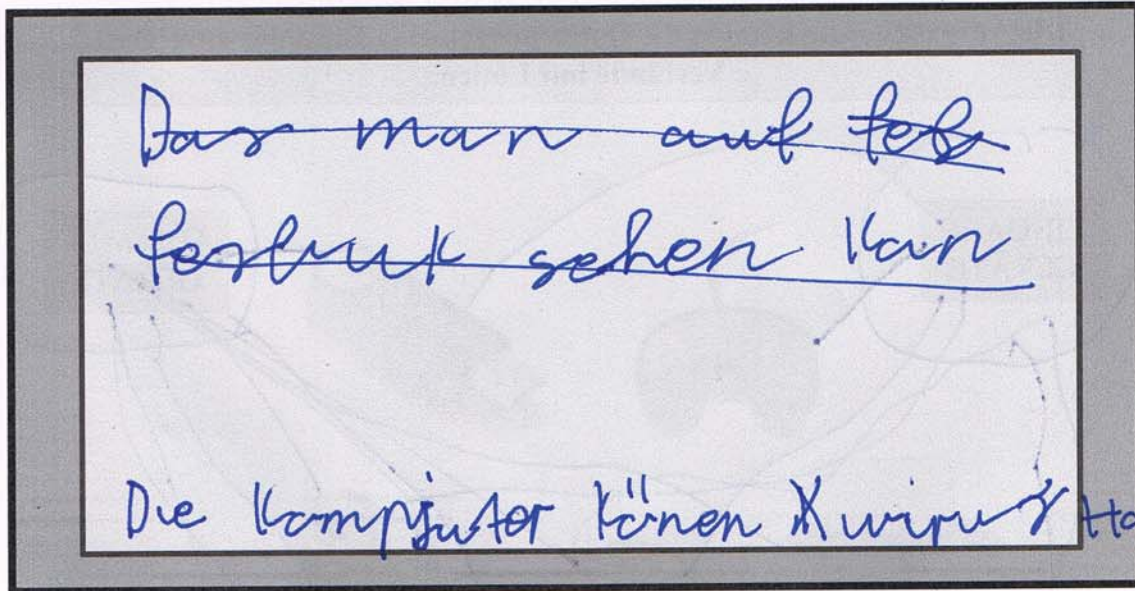 Das man auf
fesbuk sehen kan
Die kompjuter könen wirus